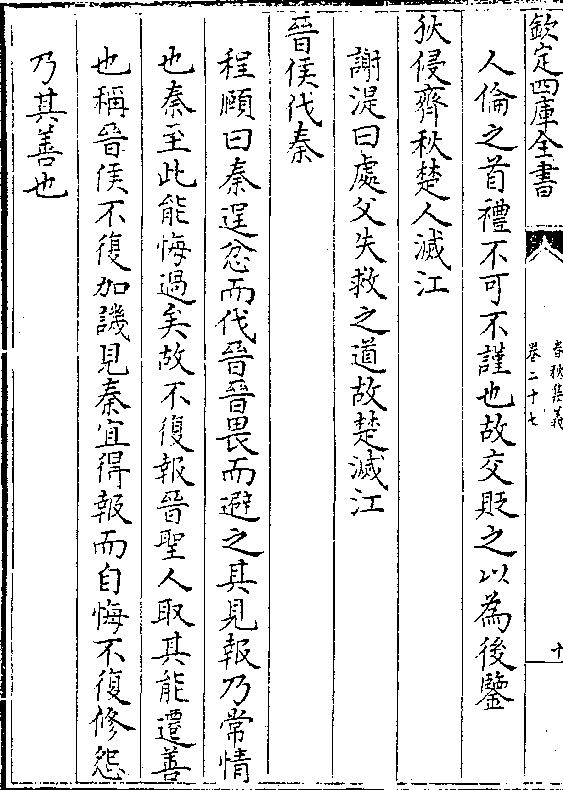 欽定四庫全書
春秋集義
卷二十七
十
人倫之首禮不可不謹也故交貶之以為後鑒
狄侵齊秋楚人滅江
謝湜曰處父失救之道故楚滅江
晉侯伐秦
程頤曰秦逞忿而伐晉晉畏而避之其見報乃常情
也秦至此能悔過矣故不復報晉聖人取其能遷善
也稱晉侯不復加譏見秦宜得報而自悔不復修怨
乃其善也